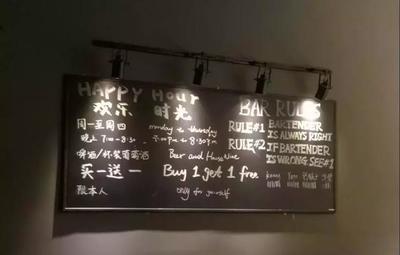 HAPPY HOUR
欢乐 时光
周一至周四 monday to thursday
晚上 7:00-8:30 7:00pm to 8:30pm
啤酒/杯装葡萄酒 Beer and House Wine
买一送一 Buy 1 get 1 free
限本人 only for yourself
BAR RULES
RULE#1 BARTENDER
IS ALWAYS RIGHT
RULE#2 IF BARTENDER
IS WRONG SEE#1